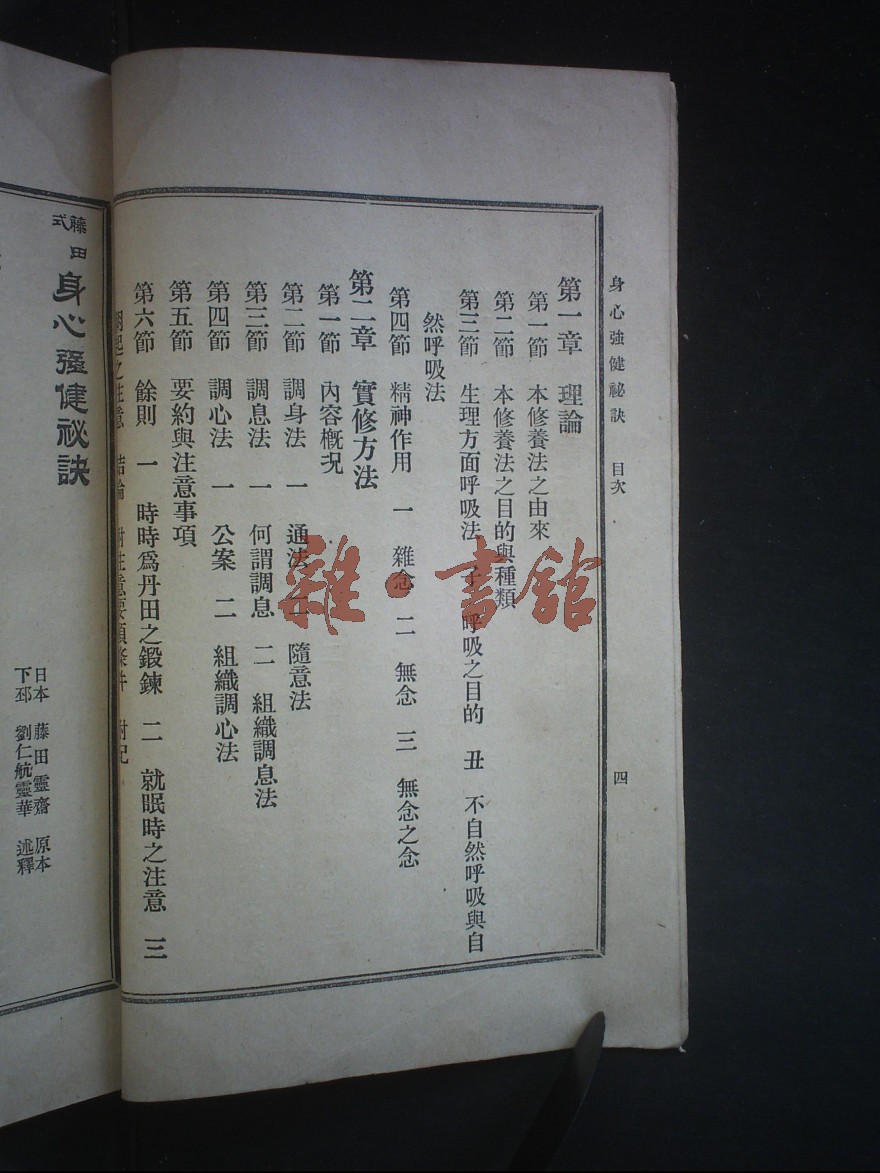 身心強健祕訣　目次
四
第一章　理論
第一節　本修養法之由來
第二節　本修養法之目的與種類
第三節　生理方面呼吸法　子　呼吸之目的　丑　不自然呼吸與自
然呼吸法
第四節　精神作用　一　雜念　二　無念　三　無念之念
第二章　實修方法
第一節　內容概況
第二節　調身法　一　通法　二　隨意法
第三節　調息法　一　何謂調息　二　組織調息法
第四節　調心法　一　公案　二　組織調心法
第五節　要約與注意事項
第六節　餘則　一　時時爲丹田之鍛鍊　二　就眠時之注意　三
起之注意　結論　附注意要項條件　附記
藤田式　身心强健祕訣
日本　藤田靈齋　原本
下邳　劉仁航靈華　述釋
雜·書館